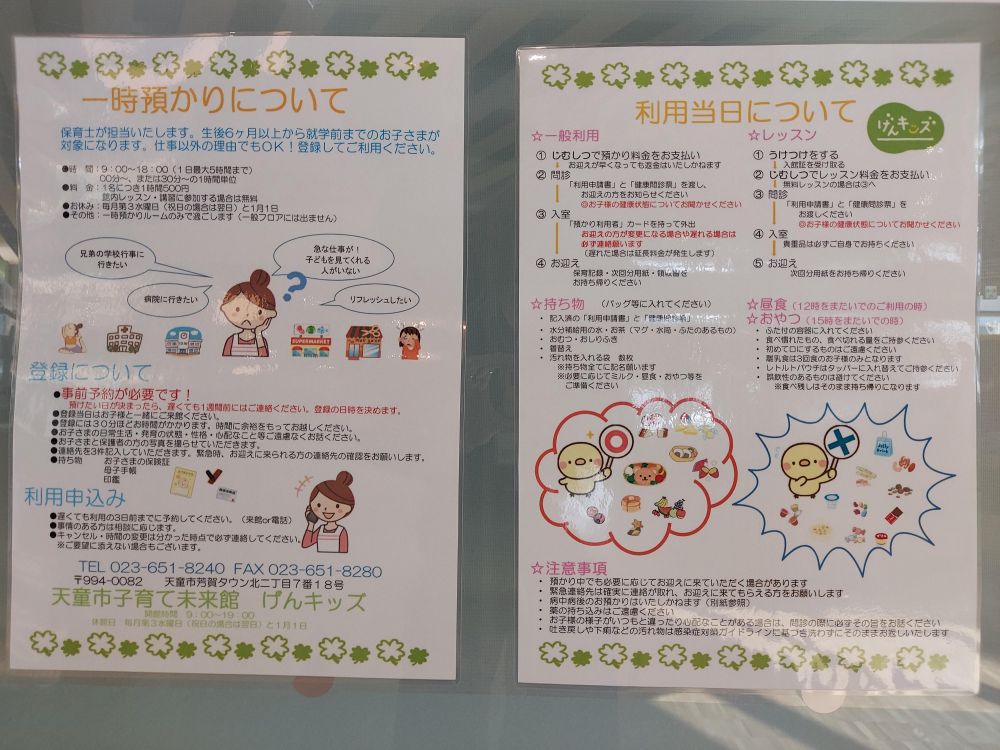 一時預かりについて
保育士が担当いたします。生後6ヶ月以上から就学前までのお子さまが
対象になります。仕事以外の理由でもOK！登録してご利用ください。
●時　間：9：00～18：00（1日最大5時間まで）
00分～、または30分～の1時間単位
●料　金：1名につき1時間500円
館内レッスン・講習に参加する場合は無料
●お休み：毎月第3水曜日（祝日の場合は翌日）と1月1日
●その他：一時預かりルームのみで過ごします（一般フロアには出ません）
兄弟の学校行事に
行きたい
急な仕事が！
子どもを見てくれる
人がいない
病院に行きたい
リフレッシュしたい
SUPERMARKET
登録について
●事前予約が必要です！
預けたい日が決まったら、遅くても1週間前にはご連絡ください。登録の日時を決めます。
●登録当日はお子様と一緒にご来館ください。
●登録には30分ほどお時間がかかります。時間に余裕をもってお越しください。
●お子さまの日常生活・発育の状態・性格・心配なこと等ご遠慮なくお話ください。
●お子さまと保護者の方の写真を撮らせていただきます。
●連絡先を3件記入していただきます。緊急時、お迎えに来られる方の連絡先の確認をお願いします。
●持ち物　お子さまの保険証
母子手帳
印鑑
利用申込み
●遅くても利用の3日前までに予約してください。（来館or電話）
●事情のある方は相談に応じます。
●キャンセル・時間の変更は分かった時点で必ず連絡してください。
※ご要望に添えない場合もございます。
TEL 023-651-8240 FAX 023-651-8280
〒994-0082　天童市芳賀タウン北二丁目7番18号
天童市子育て未来館　げんキッズ
開館時間　9：00～19：00
休館日　毎月第3水曜日（祝日の場合は翌日）と1月1日
利用当日について
げんキッズ
☆一般利用
① じむしつで預かり料金をお支払い
お迎えが早くなっても返金はいたしかねます
② 問診
「利用申請書」と「健康問診票」を渡し、
お迎えの方をお知らせください
◎お子様の健康状態についてお聞かせください
③ 入室
「預かり利用者」カードを持って外出
お迎えの方が変更になる場合や遅れる場合は
必ず連絡願います
（遅れた場合は延長料金が発生します）
④ お迎え
保育記録・次回分用紙・領収書を
お持ち帰りください
☆レッスン
① うけつけをする
入館証を受け取る
② じむしつでレッスン料金をお支払い
無料レッスンの場合は③へ
③ 問診
「利用申請書」と「健康問診票」を
お渡しください
◎お子様の健康状態についてお聞かせください
④ 入室
貴重品は必ずご自身でお持ちください
⑤ お迎え
次回分用紙をお持ち帰りください
☆持ち物　（バッグ等に入れてください）
・ 記入済の「利用申請書」と「健康問診票」
・ 水分補給用の水・お茶（マグ・水筒・ふたのあるもの）
・ おむつ・おしりふき
・ 着替え
・ 汚れ物を入れる袋　数枚
※持ち物全てに記名願います
※必要に応じてミルク・昼食・おやつ等を
ご準備ください
☆昼食（12時をまたいでのご利用の時）
☆おやつ（15時をまたいでの時）
・ ふた付の容器に入れてください
・ 食べ慣れたもの、食べ切れる量をご持参ください
・ 初めて口にするものはご遠慮ください
・ 離乳食は3回食のお子様のみとなります
・ レトルトパウチはタッパーに入れ替えてご持参ください
・ 誤飲性のあるものは避けてください
※食べ残しはそのまま持ち帰りになります
☆注意事項
・ 預かり中でも必要に応じてお迎えに来ていただく場合があります
・ 緊急連絡先は確実に連絡が取れ、お迎えに来てもらえる方をお願いします
・ 病中病後のお預かりはいたしかねます（別紙参照）
・ 薬の持ち込みはご遠慮ください
・ お子様の様子がいつもと違ったり心配なことがある場合は、問診の際に必ずその旨をお話ください
・ 吐き戻しや下痢などの汚れ物は感染症対策ガイドラインに基づき洗わずにそのままお返しいたします